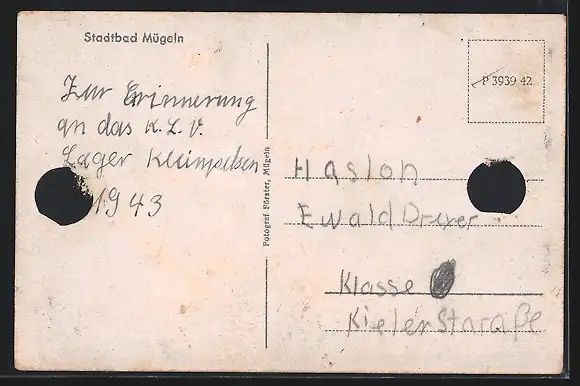 Stadtbad Mügeln
Zur Erinnerung
an das K.L.V.
Lager
1943
Fotograf Förster, Mügeln
P 3939 42
Haslon
Ewald Drexer
Klasse
Kieler Staraße